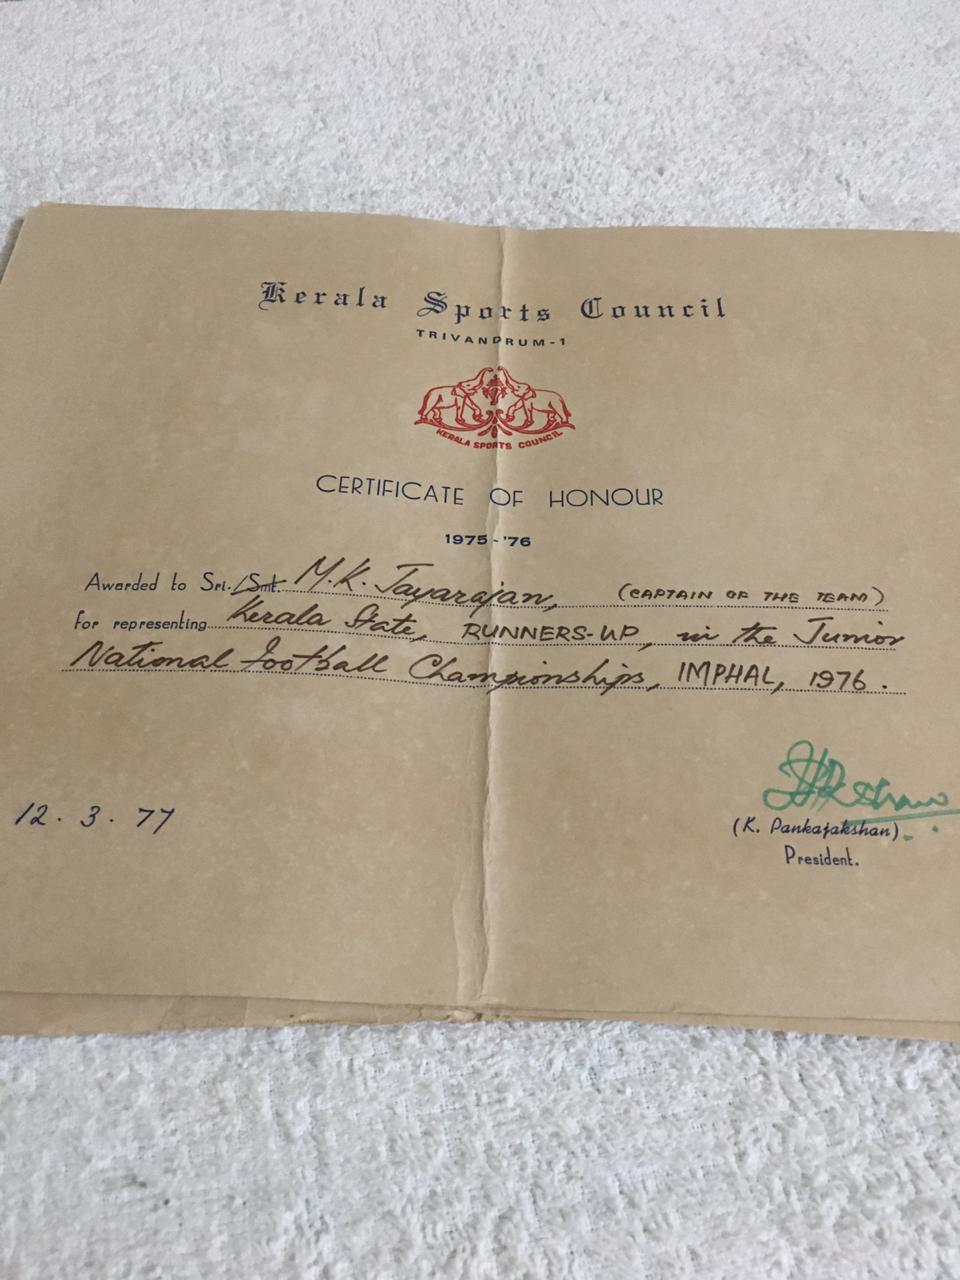 Kerala Sports Council
TRIVANDRUM-1
KERALA SPORTS COUNCIL
CERTIFICATE OF HONOUR
1975-'76
Awarded to Sri./Smt. M.K. Jayarajan, (CAPTAIN OF THE TEAM)
for representing Kerala State, RUNNERS-UP, in the Junior
National Football Championships, IMPHAL, 1976.
12.3.77
(K. Pankajakshan)
President.